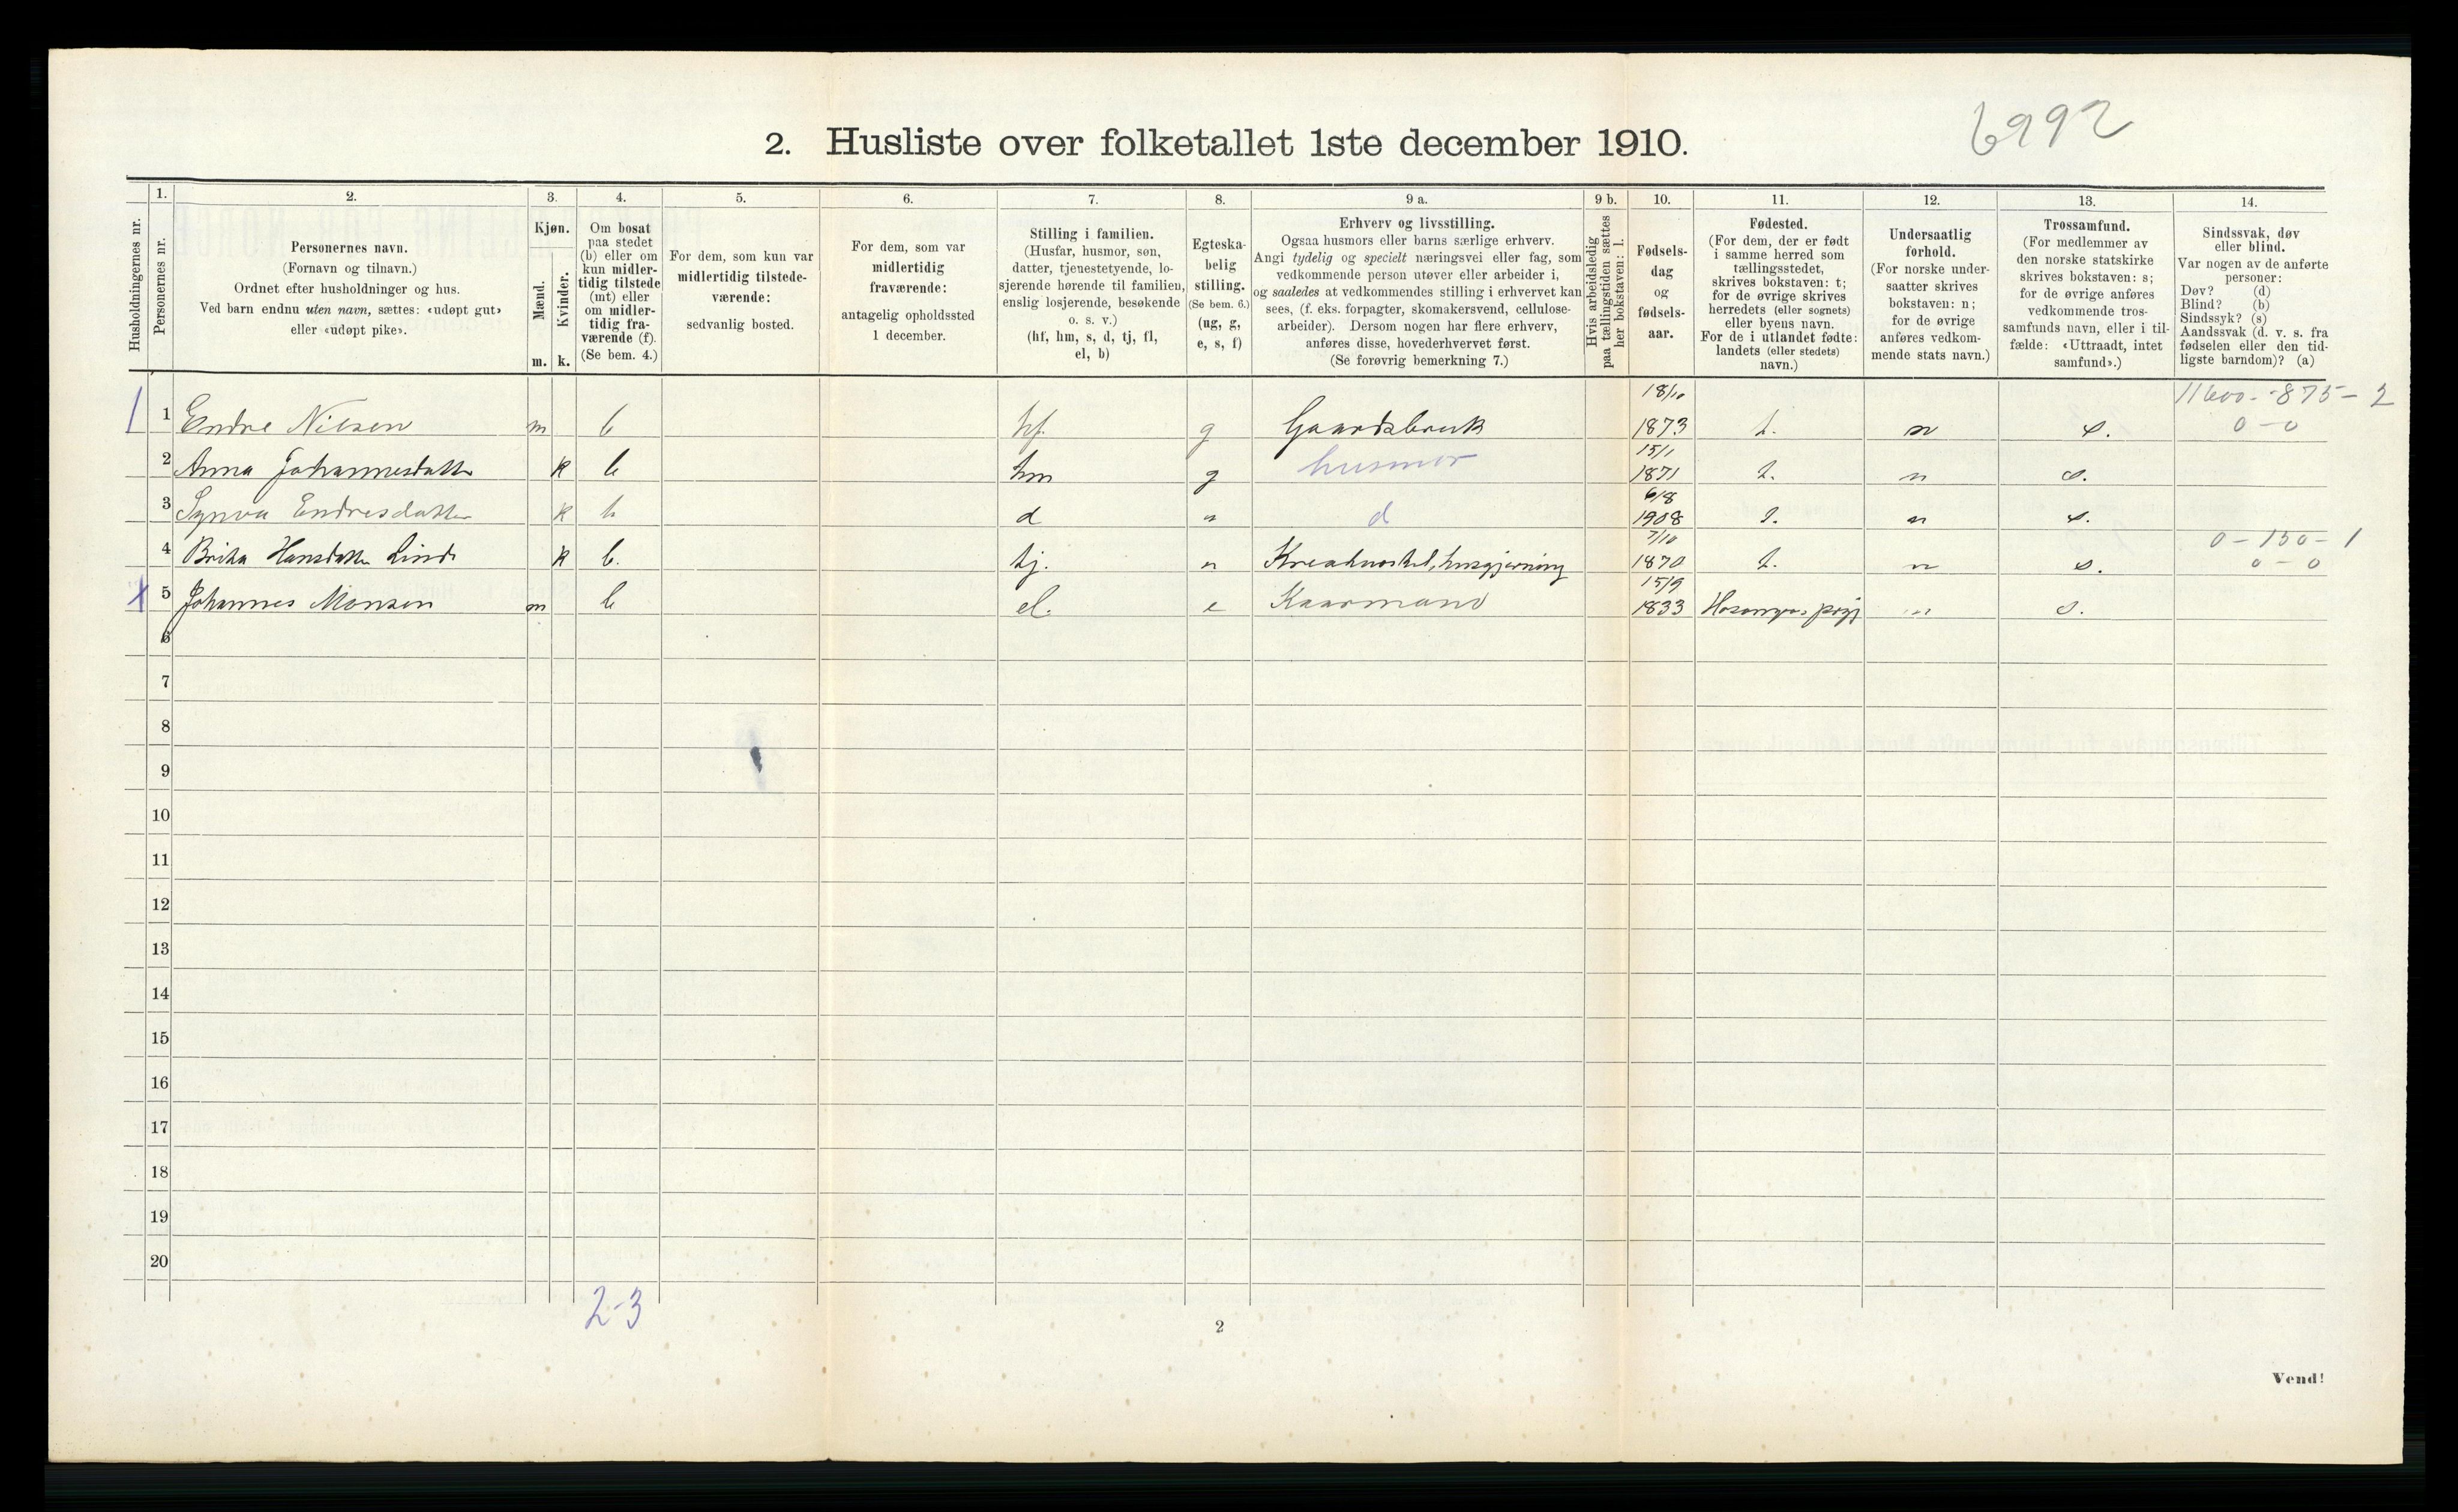 6992
2. Husliste over folketallet 1ste december 1910.
Husholdningernes nr.
1.
Personernes nr.
2.
Personernes navn.
(Fornavn og tilnavn.)
Ordnet efter husholdninger og hus.
Ved barn endnu uten navn, sættes: «udøpt gut»
eller «udøpt pike».
3.
Kjøn.
Mænd.
Kvinder.
m. k.
4.
Om bosat
paa stedet
(b) eller om
kun midler-
tidig tilstede
(mt) eller
om midler-
tidig fra-
værende (f).
(Se bem. 4.)
5.
For dem, som kun var
midlertidig tilstede-
værende:
sedvanlig bosted.
6.
For dem, som var
midlertidig
fraværende:
antagelig opholdssted
1 december.
7.
Stilling i familien.
(Husfar, husmor, søn,
datter, tjenestetyende, lo-
sjerende hørende til familien,
enslig losjerende, besøkende
o. s. v.)
(hf, hm, s, d, tj, fl,
el, b)
8.
Egteska-
belig
stilling.
(Se bem. 6.)
(ug, g,
e, s, f)
9 a.
Erhverv og livsstilling.
Ogsaa husmors eller barns særlige erhverv.
Angi tydelig og specielt næringsvei eller fag, som
vedkommende person utøver eller arbeider i,
og saaledes at vedkommendes stilling i erhvervet kan
sees, (f. eks. forpagter, skomakersvend, cellulose-
arbeider). Dersom nogen har flere erhverv,
anføres disse, hovederhvervet først.
(Se forøvrig bemerkning 7.)
9 b.
Hvis arbeidsledig
paa tællingstiden sættes
her bokstaven: l.
10.
Fødsels-
dag
og
fødsels-
aar.
11.
Fødested.
(For dem, der er født
i samme herred som
tællingsstedet,
skrives bokstaven: t;
for de øvrige skrives
herredets (eller sognets)
eller byens navn.
For de i utlandet fødte:
landets (eller stedets)
navn.)
12.
Undersaatlig
forhold.
(For norske under-
saatter skrives
bokstaven: n;
for de øvrige
anføres vedkom-
mende stats navn.)
13.
Trossamfund.
(For medlemmer av
den norske statskirke
skrives bokstaven: s;
for de øvrige anføres
vedkommende tros-
samfunds navn, eller i til-
fælde: «Uttraadt, intet
samfund».)
14.
Sindssvak, døv
eller blind.
Var nogen av de anførte
personer:
Døv? (d)
Blind? (b)
Sindssyk? (s)
Aandssvak (d. v. s. fra
fødselen eller den tid-
ligste barndom)? (a)
18/10 11600 - 875 - 2
1 Endre Nilsen m b hf. g Gaardsbruk 1873 t. n s. 0 - 0
15/1
2 Anna Johannesdatter k b hm g husmor 1871 t. n s.
6/8
3 Synva Endresdatter k b d d 1908 t. n s.
7/10 0 - 150 - 1
4 Brita Hansdatter Lind k b. tj. Kreaturstel, husgjerning 1870 t. n s. 0 - 0
15/9
5 Johannes Monsen m b el. e Kaarmand 1833 n s.
6
7
8
9
10
11
12
13
14
15
16
17
18
19
20
2-3
2
Vend!